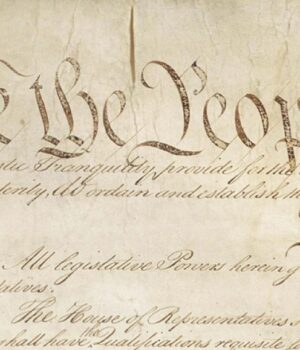 the Peop
Tranquility, provide for the
terity, do ordain and establish th
All legislative Powers herein g
tatives.
The House of Representatives
shall have the Qualifications requisite